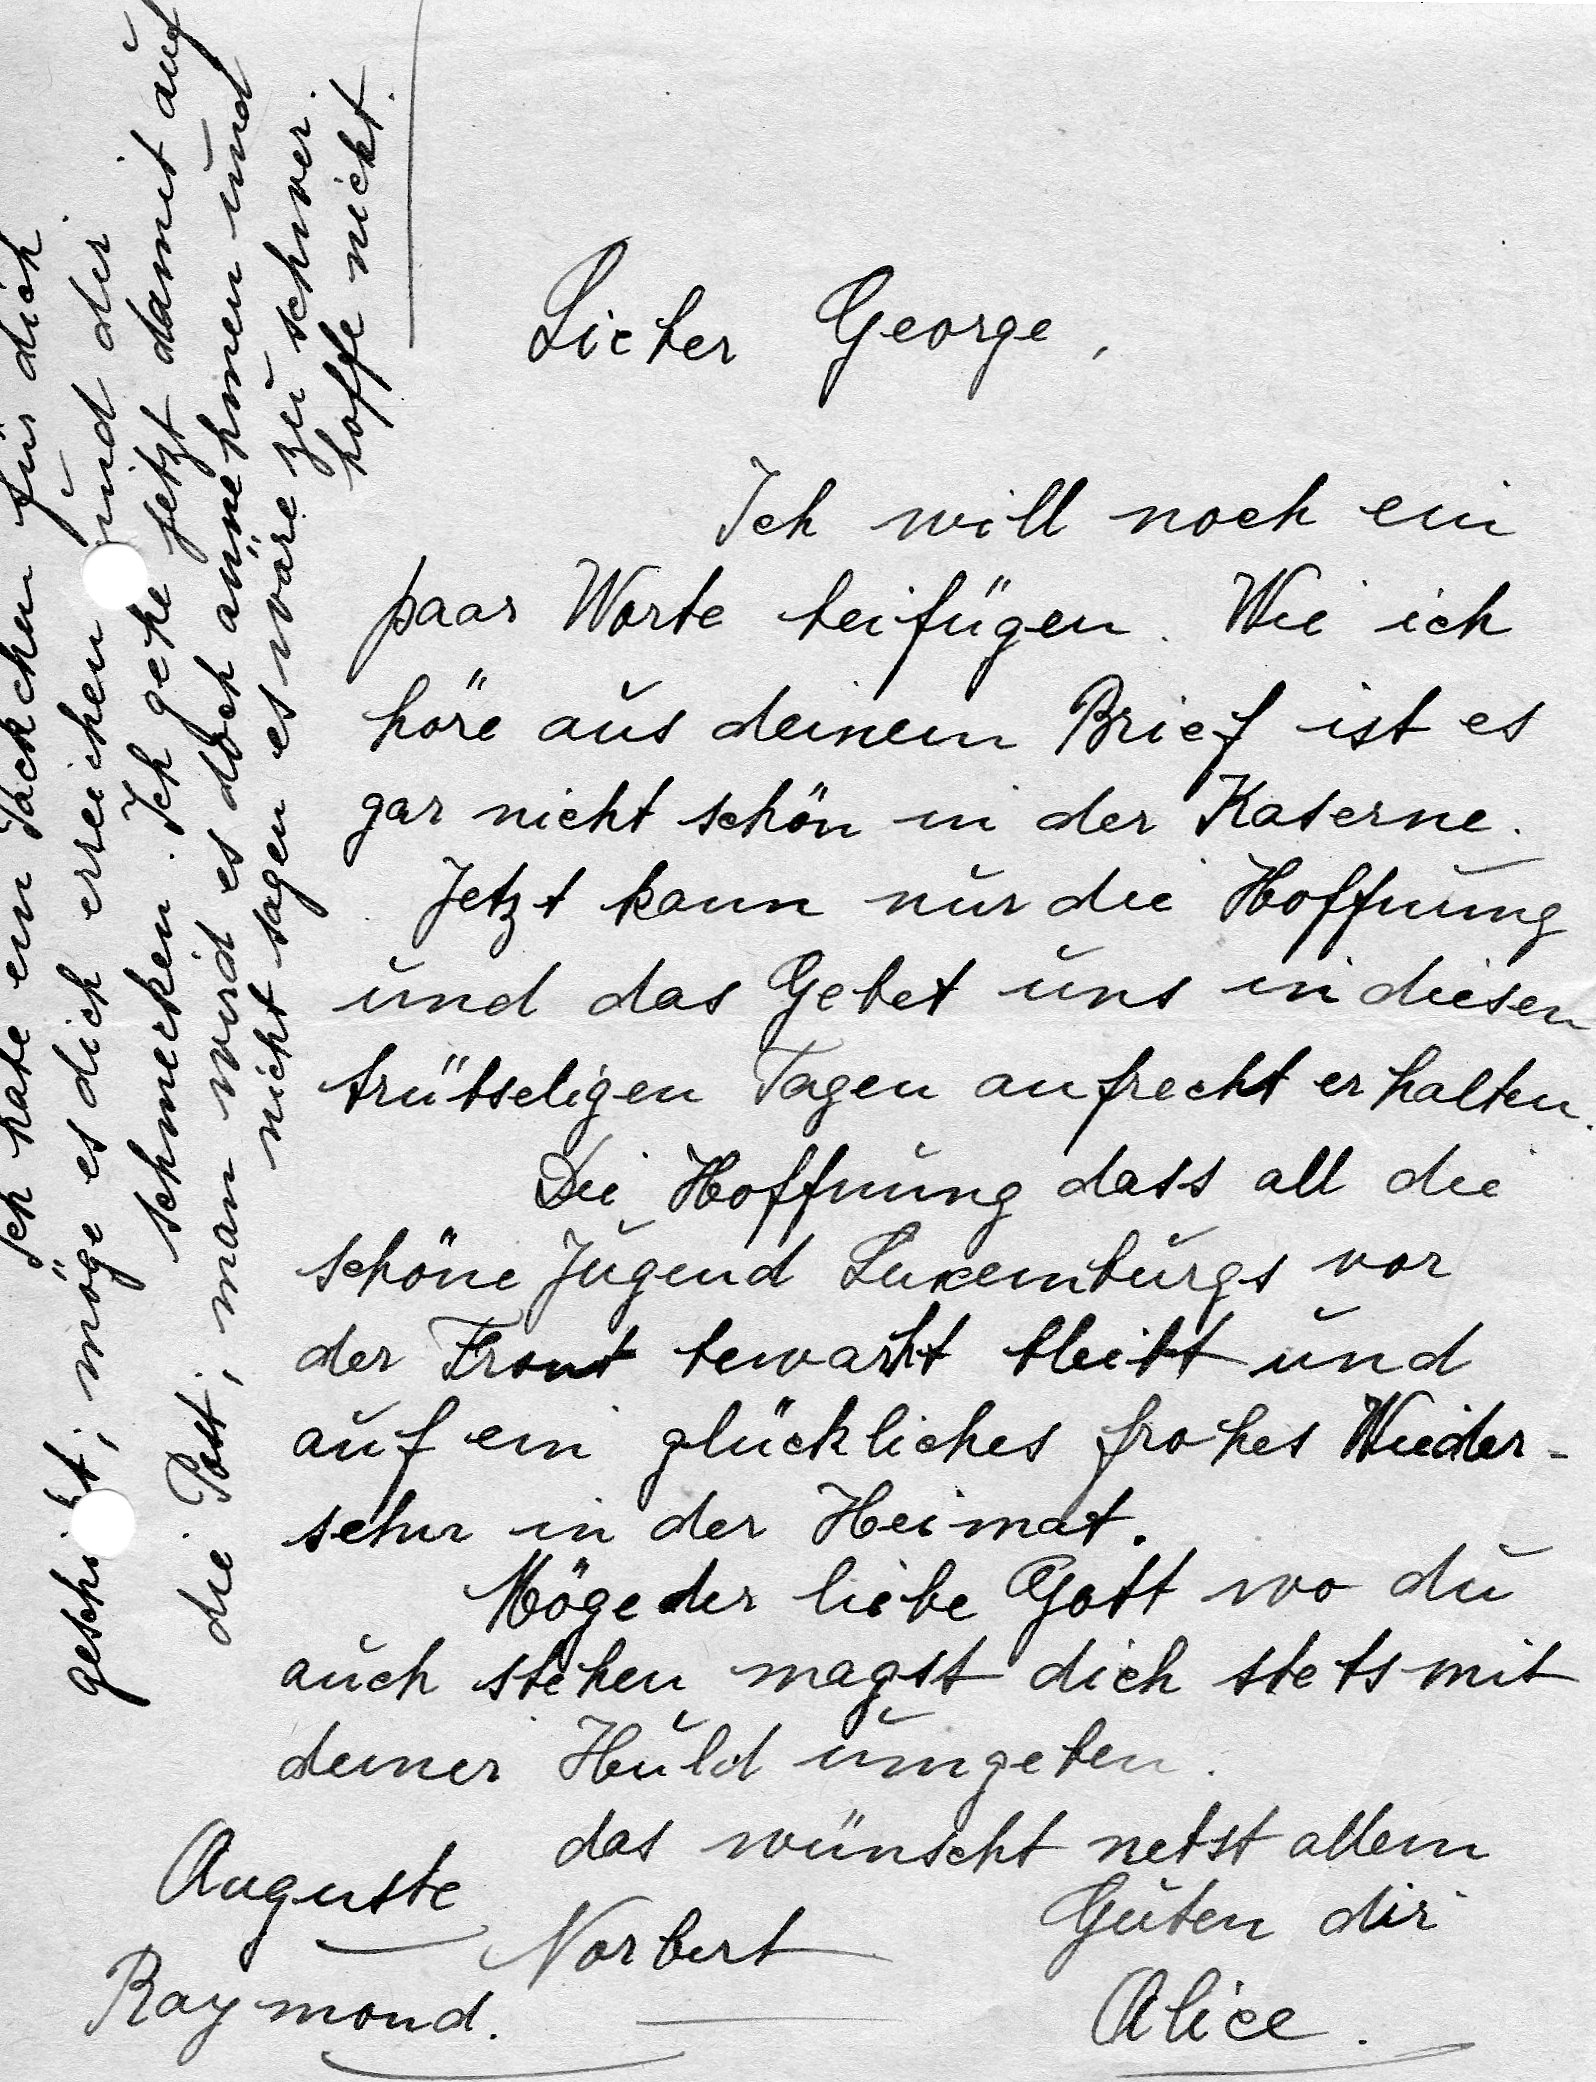 Lieber George,
Ich will noch ein
paar Worte beifügen. Wie ich
höre aus deinem Brief ist es
gar nicht schön in der Kaserne.
Jetzt kann nur die Hoffnung
und das Gebet uns in diesen
trübseligen Tagen aufrecht erhalten.
Die Hoffnung dass all die
schöne Jugend Luxemburgs vor
der Front bewahrt bleibt und
auf ein glückliches frohes Wieder-
sehn in der Heimat.
Möge der liebe Gott wo du
auch stehen magst dich stets mit
deiner Huld umgeben.
das wünscht nebst allem
Guten dir
Alice.
Auguste
Norbert
Raymond.
Ich habe ein Päckchen für dich
geschickt; möge es dich erreichen und dir
schmecken. Ich gehe jetzt damit auf
die Post; man wird es doch annehmen und
nicht sagen es wäre zu schwer.
hoffe nicht.